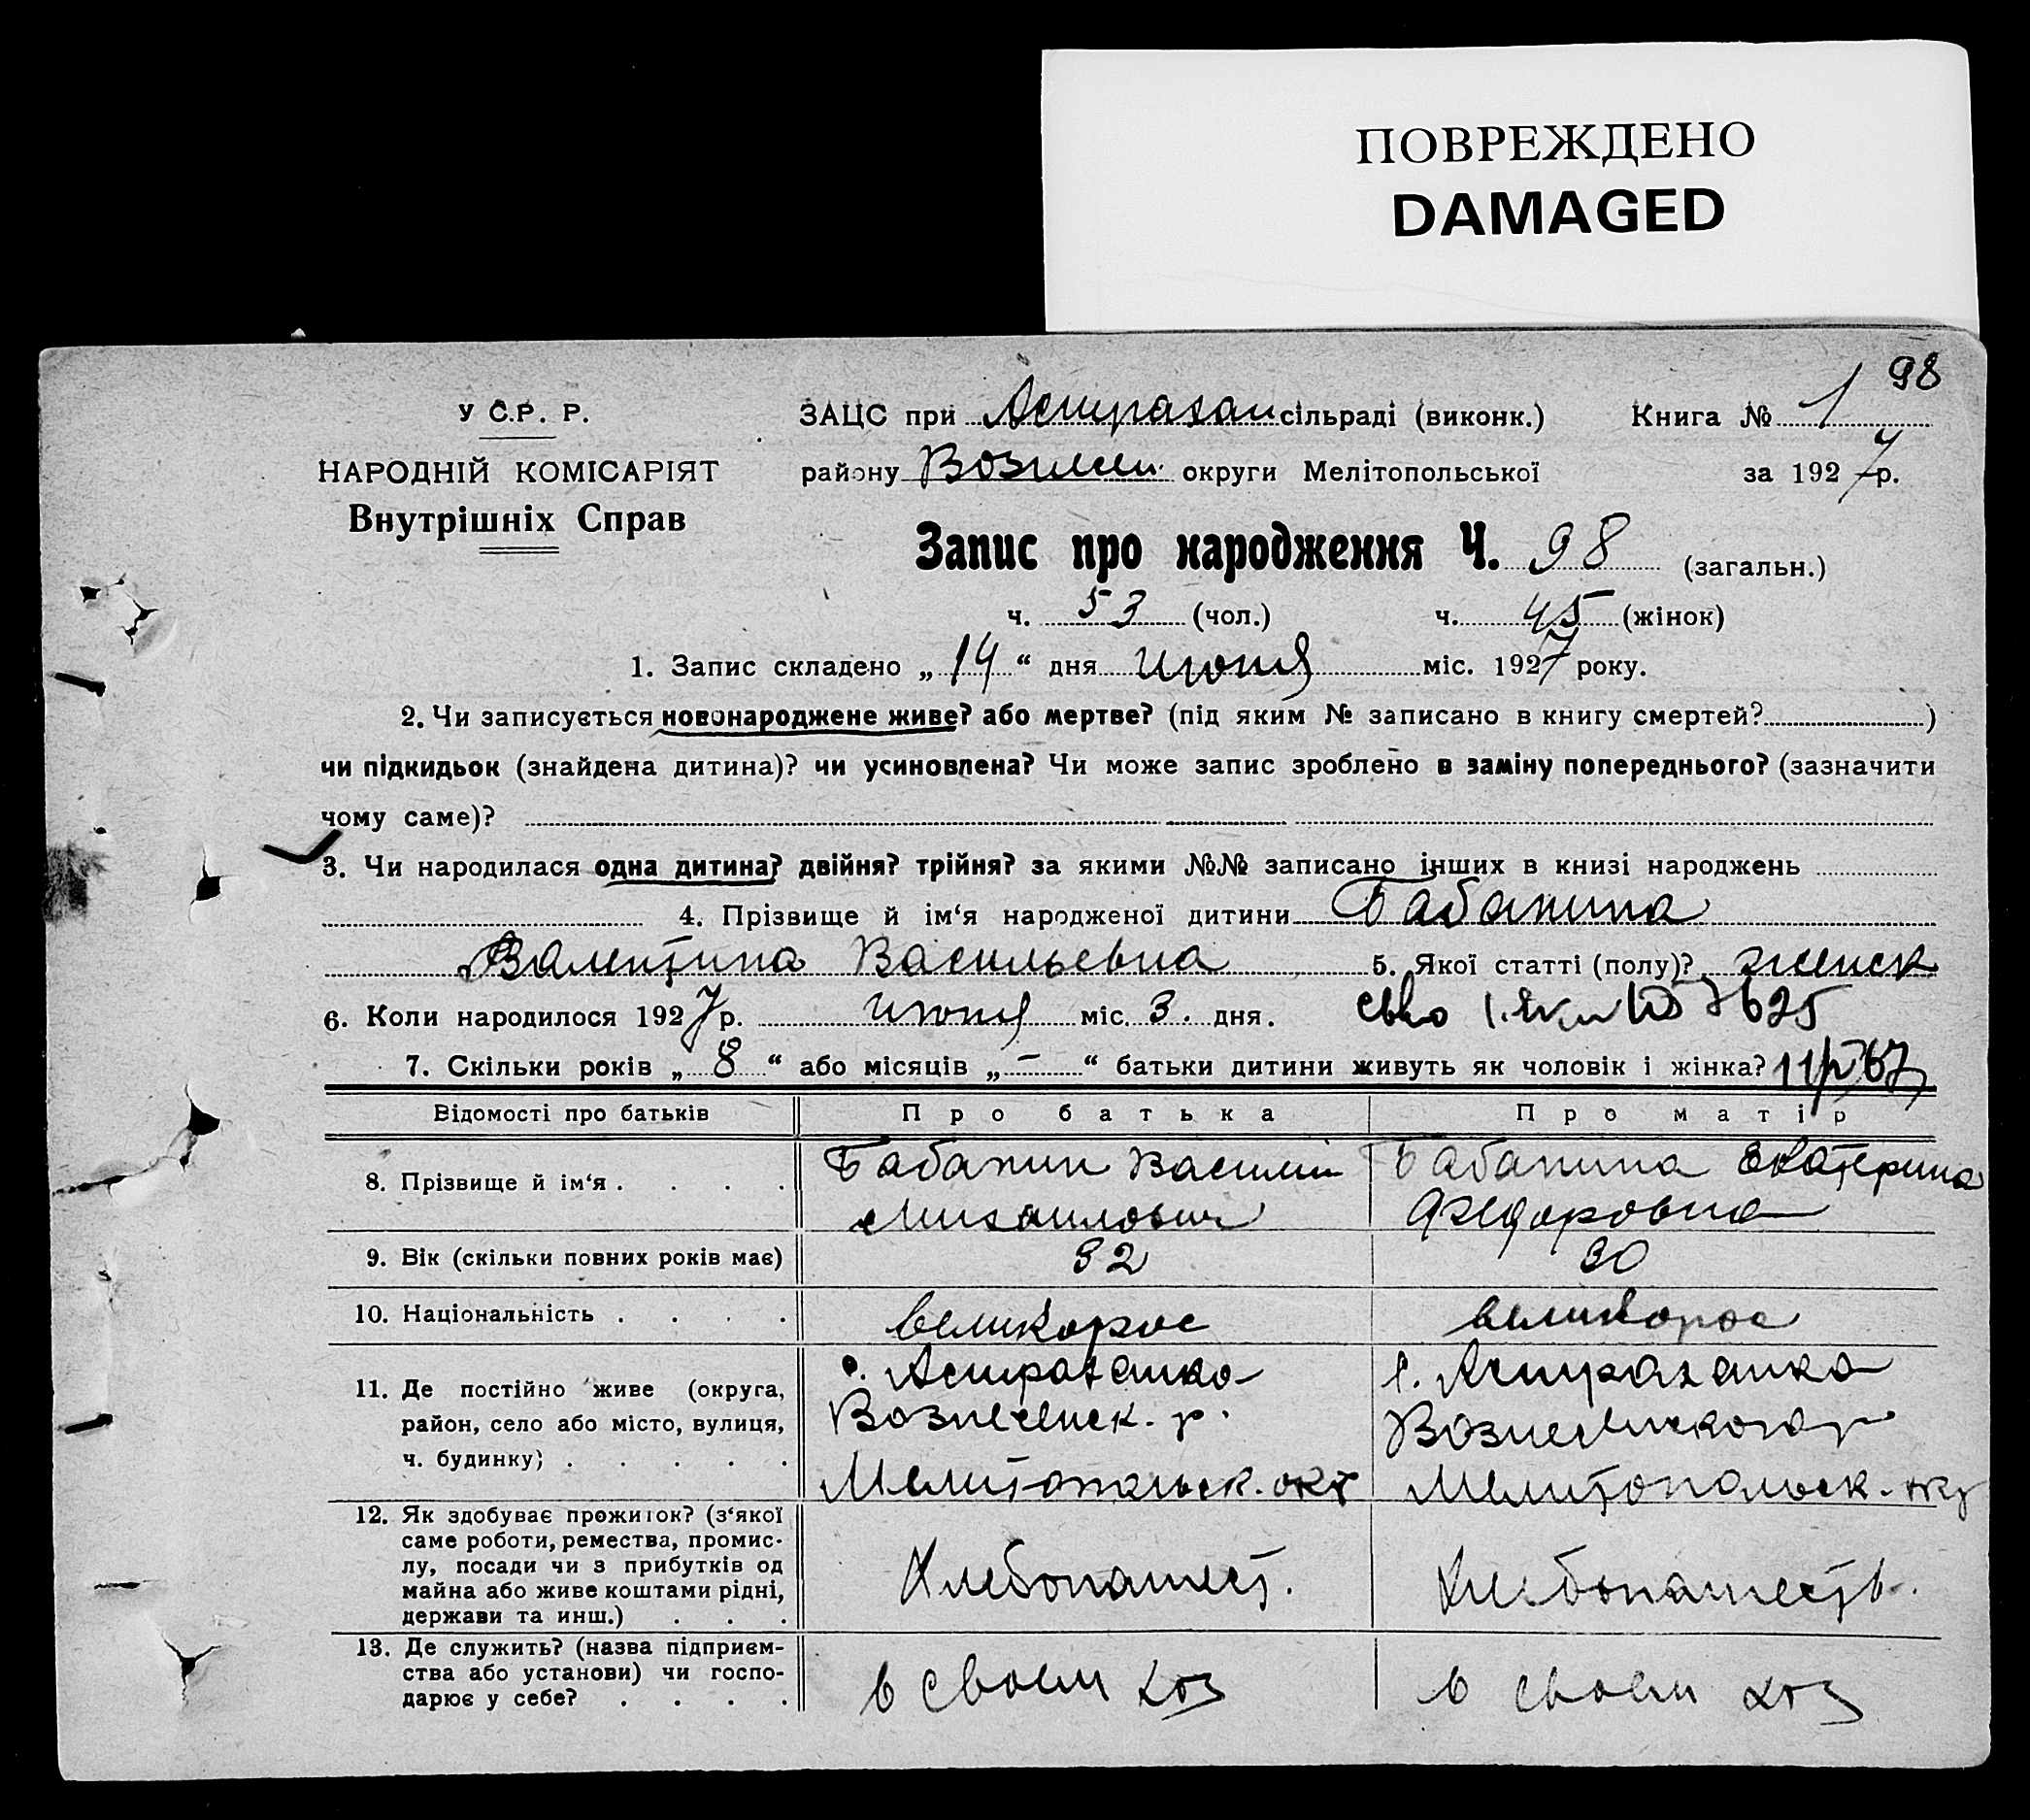 ПОВРЕЖДЕНО
DAMAGED
98
У С.Р. Р.
НАРОДНІЙ КОМІСАРІЯТ
Внутрішніх Справ
ЗАЦС при Астрахан сільраді (виконк.) Книга № 1
району Вознесен. округи Мелітопольської за 1927 р.
Запис про народження Ч. 98 (загальн.)
ч. 53 (чол.) ч. 45 (жінок)
1. Запис складено „14“ дня июня міс. 1927 року.
2. Чи записується новонароджене живе? або мертве? (під яким № записано в книгу смертей? )
чи підкидьок (знайдена дитина)? чи усиновлена? Чи може запис зроблено в заміну попереднього? (зазначити
чому саме)?
3. Чи народилася одна дитина? двійня? трійня? за якими №№ записано інших в книзі народжень
4. Прізвище й ім‘я народженої дитини Бабанина
Валентина Васильевна 5. Якої статті (полу)? женск
6. Коли народилося 1927 р. июня міс. 3. дня.
7. Скільки років „8“ або місяців „–“ батьки дитини живуть як чоловік і жінка?
Відомості про батьків Про батька Про матір
8. Прізвище й ім‘я . . . . Бабанин Василий Бабанина Екатерина
Михаилович Федоровна
9. Вік (скільки повних років має) 32 30
10. Національність . . . . великорос великорос
11. Де постійно живе (округа, с. Астраханка с. Астраханка
район, село або місто, вулиця, Вознесенск. р. Вознесенского р
ч. будинку; . . . . . Мелитопольск. окр Мелитопольск. окр
12. Як здобуває прожиток? (з‘якої
саме роботи, ремества, промис-
лу, посади чи з прибутків од
майна або живе коштами рідні, Хлебопашест. Хлебопашеств.
держави та инш.) . . .
13. Де служить? (назва підприєм-
ства або установи) чи госпо-
дарює у себе? . . . . в своем хоз в своем хоз